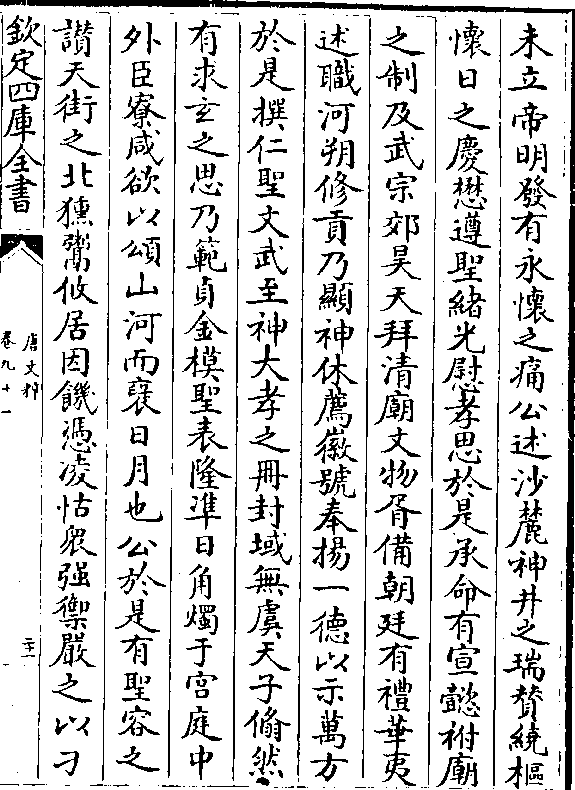 未立帝明發有永懷之痛公述沙麓神井之瑞賛繞樞
懷日之慶懋遵聖緒光慰孝思於是承命有宣懿祔廟
之制及武宗郊昊天拜清廟文物胥備朝廷有禮華夷
述職河朔修貢乃顯神休薦徽號奉揚一德以示萬方
於是撰仁聖文武至神大孝之冊封域無虞天子翛然
有求玄之思乃範貞金模聖表隆準日角燭于宫庭中
外臣寮咸欲以頌山河而襃日月也公於是有聖容之
讃天街之北獯鬻攸居因饑憑凌怙衆强禦嚴之以刁
欽定四庫全書
唐文粹
卷九十一
二十一